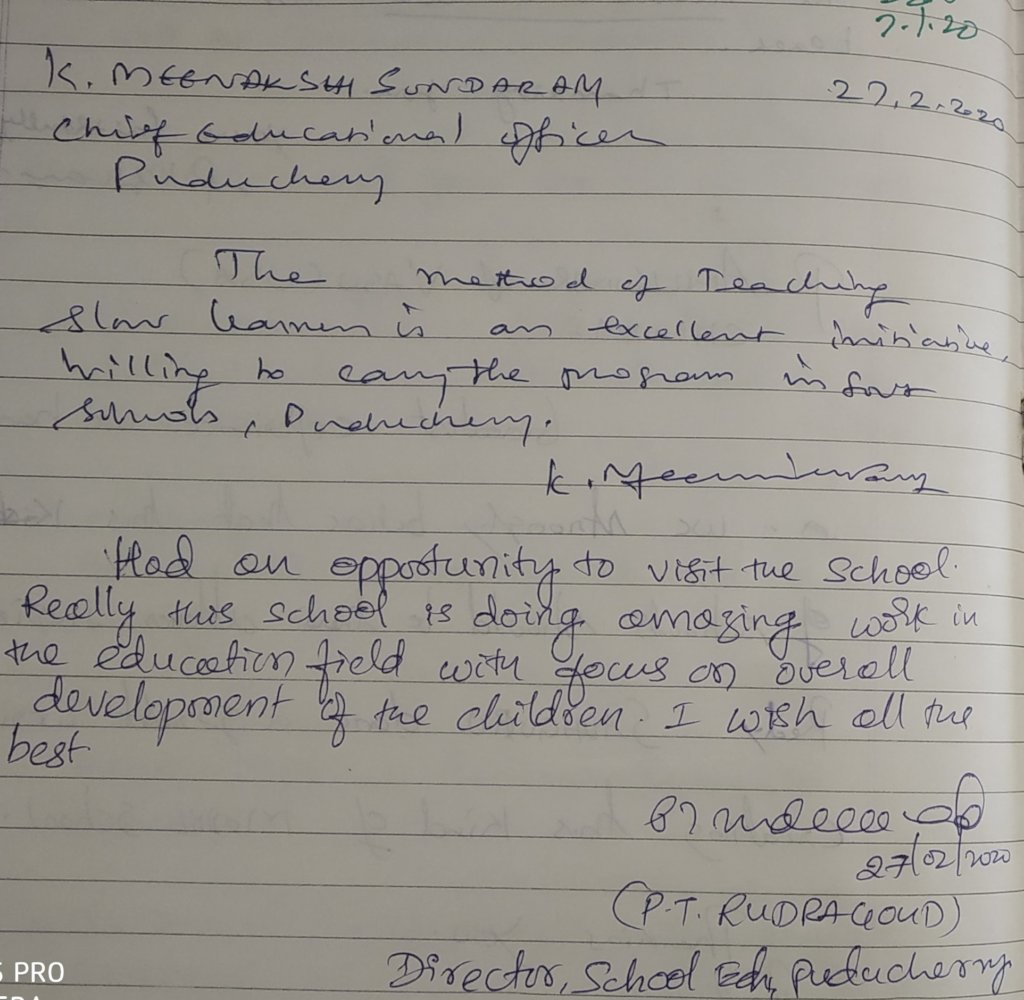 7.1.20
K. MEENAKSHI SUNDARAM 27.2.2020
Chief Educational Officer
Puducherry
The method of Teaching
slow learners is an excellent initiative,
willing to carry the program in four
schools, Puducherry.
K.
Had an opportunity to visit the school.
Really this school is doing amazing work in
the education field with focus on overall
development of the children. I wish all the
best
27/02/2020
(P.T. RUDRAGOUD)
Director, School Edn, Puducherry
PRO